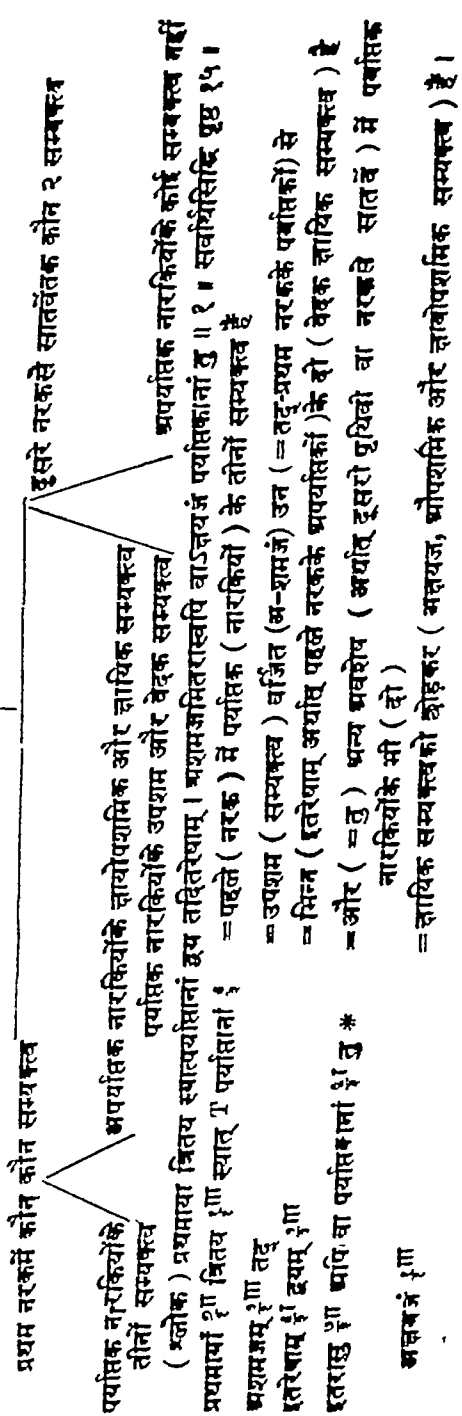 प्रथम नरकमें कौन कौन सम्यक्त्व
दूसरे नरकसे सातवेंतक कौन २ सम्यक्त्व
पर्याप्तक नारकियोंके तीनों सम्यक्त्व
अपर्याप्तक नारकियोंके क्षायोपशमिक और क्षायिक सम्यक्त्व
पर्याप्तक नारकियोंके उपशम और वेदक सम्यक्त्व
अपर्याप्तक नारकियोंके कोई सम्यक्त्व नहीं
( श्लोक ) प्रथमाया त्रितय स्यात्पर्याप्तानां द्वय तदितरेषाम् । अशमजमितरास्वपि वाऽक्षयजं पर्याप्तकानां तु ॥ १ ॥ सर्वार्थसिद्धि पृष्ठ १५ ॥
प्रथमायां त्रितय स्यात् T पर्याप्तानां =पहले ( नरक ) में पर्याप्तक ( नारकियों ) के तीनों सम्यक्त्व हैं
अशमजम् तद् =उपशम ( सम्यक्त्व ) वर्जित (अ-शमजं) उन (=तद्-प्रथम नरकके पर्याप्तकों) से
इतरेषाम् द्वयम् =भिन्न ( इतरेषाम् अर्थात् पहले नरकके अपर्याप्तकों )के दो ( वेदक क्षायिक सम्यक्त्व ) हैं
इतरासु अपि वा पर्याप्तकानां तु * =और ( =तु ) अन्य अवशेष ( अर्थात् दूसरी पृथिवी वा नरकसे सातवें ) में पर्याप्तक
नारकियोंके भी ( दो )
अक्षयजं =क्षायिक सम्यक्त्वको छोड़कर ( अक्षयज, औपशमिक और क्षायोपशमिक सम्यक्त्व ) हैं ।